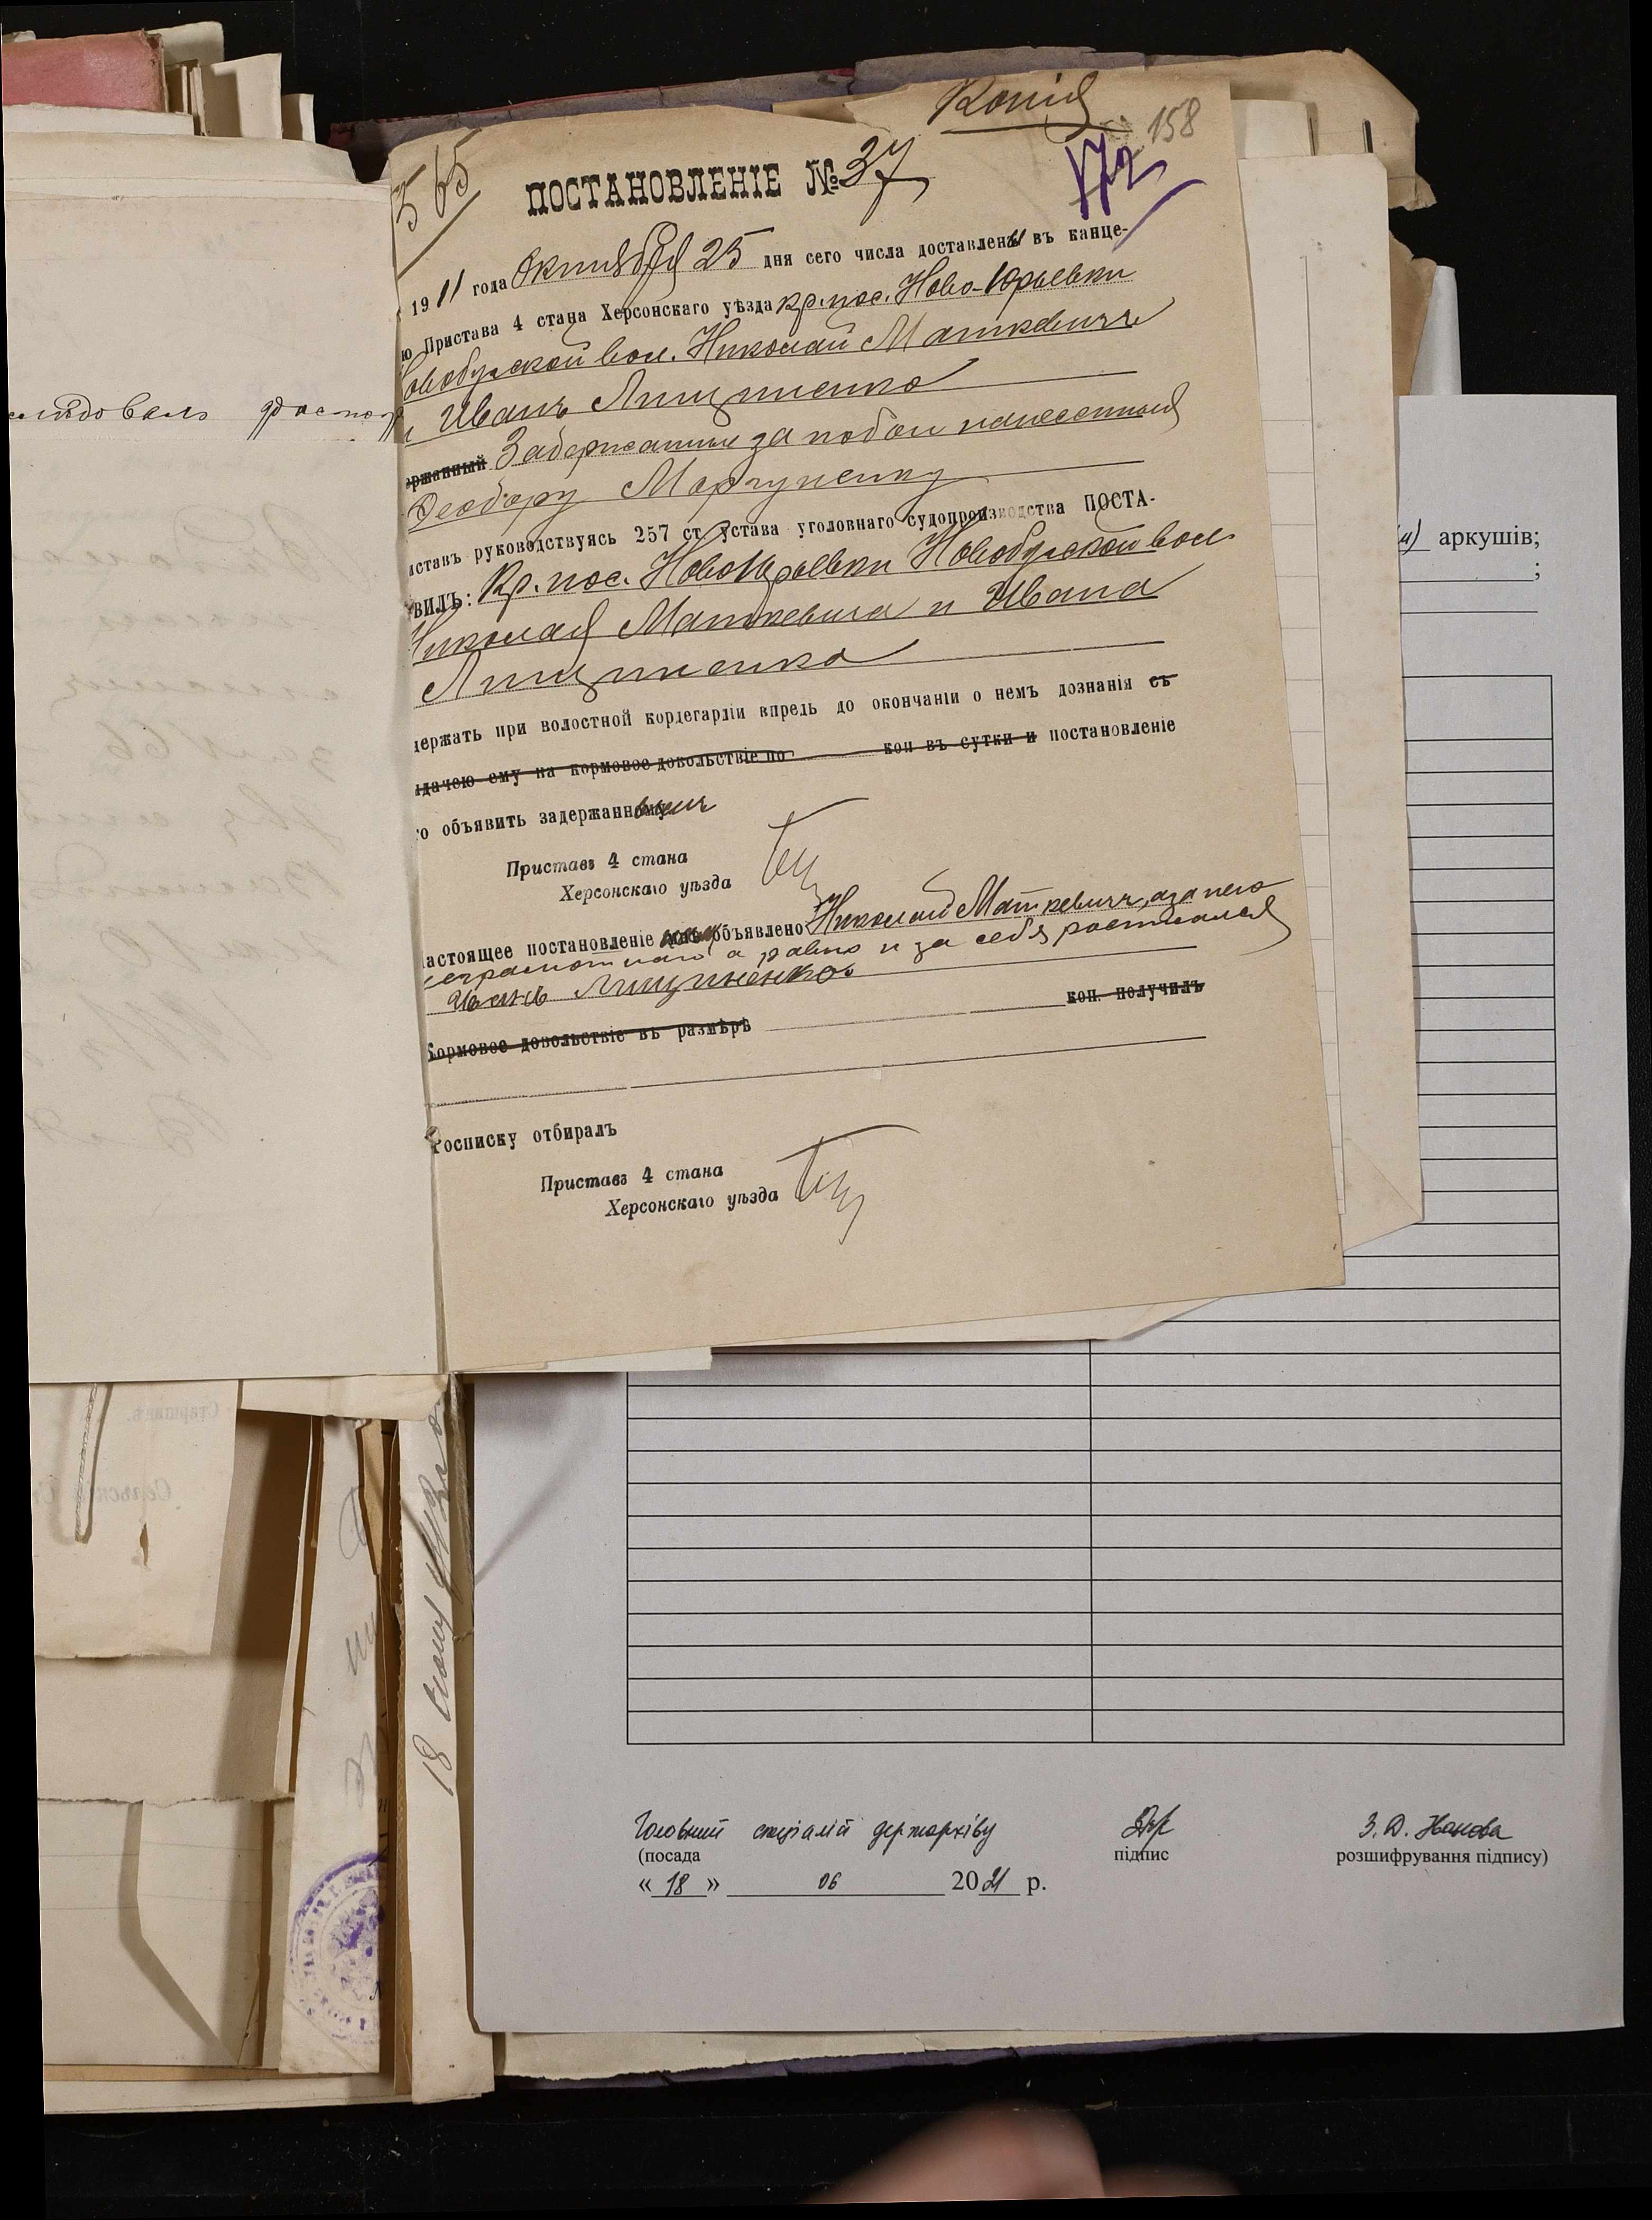 Копія
158
172
565
ПОСТАНОВЛЕНІЕ № 37
1911 года Октября 25 дня сего числа доставлены въ канце-
ю Пристава 4 стана Херсонскаго уѣзда кр. пос. Ново-Юрьевки
Новобугской вол. Николай Маткевичъ
и Иванъ Лищиненко
ержанный Задержанные за побои нанесенныя
Феодору Моргуненку
иставъ руководствуясь 257 ст. устава уголовнаго судопроизводства ПОСТА-
ВИЛЪ: Кр. пос. НовоЮрьевки Новобугской вол.
Николая Маткевича и Ивана
Лищиненка
держать при волостной кордегардіи впредь до окончанія о немъ дознанія съ
ыдачею ему на кормовое довольствіе по коп въ сутки и постановленіе
го объявить задержаннымъ
Приставъ 4 стана
Херсонскаго уѣзда
астоящее постановленіе объявлено Николай Маткевичъ, а за него
неграмотнаго а равно и за себя росписался
Иванъ Лищиненко
Кормовое довольствіе въ размѣрѣ коп. получилъ
Росписку отбиралъ
Приставъ 4 стана
Херсонскаго уѣзда
аркушів;
;
Головний спеціаліст держархіву
З. О. Іванова
(посада
підпис
розшифрування підпису)
« 18 » 06 2021 р.